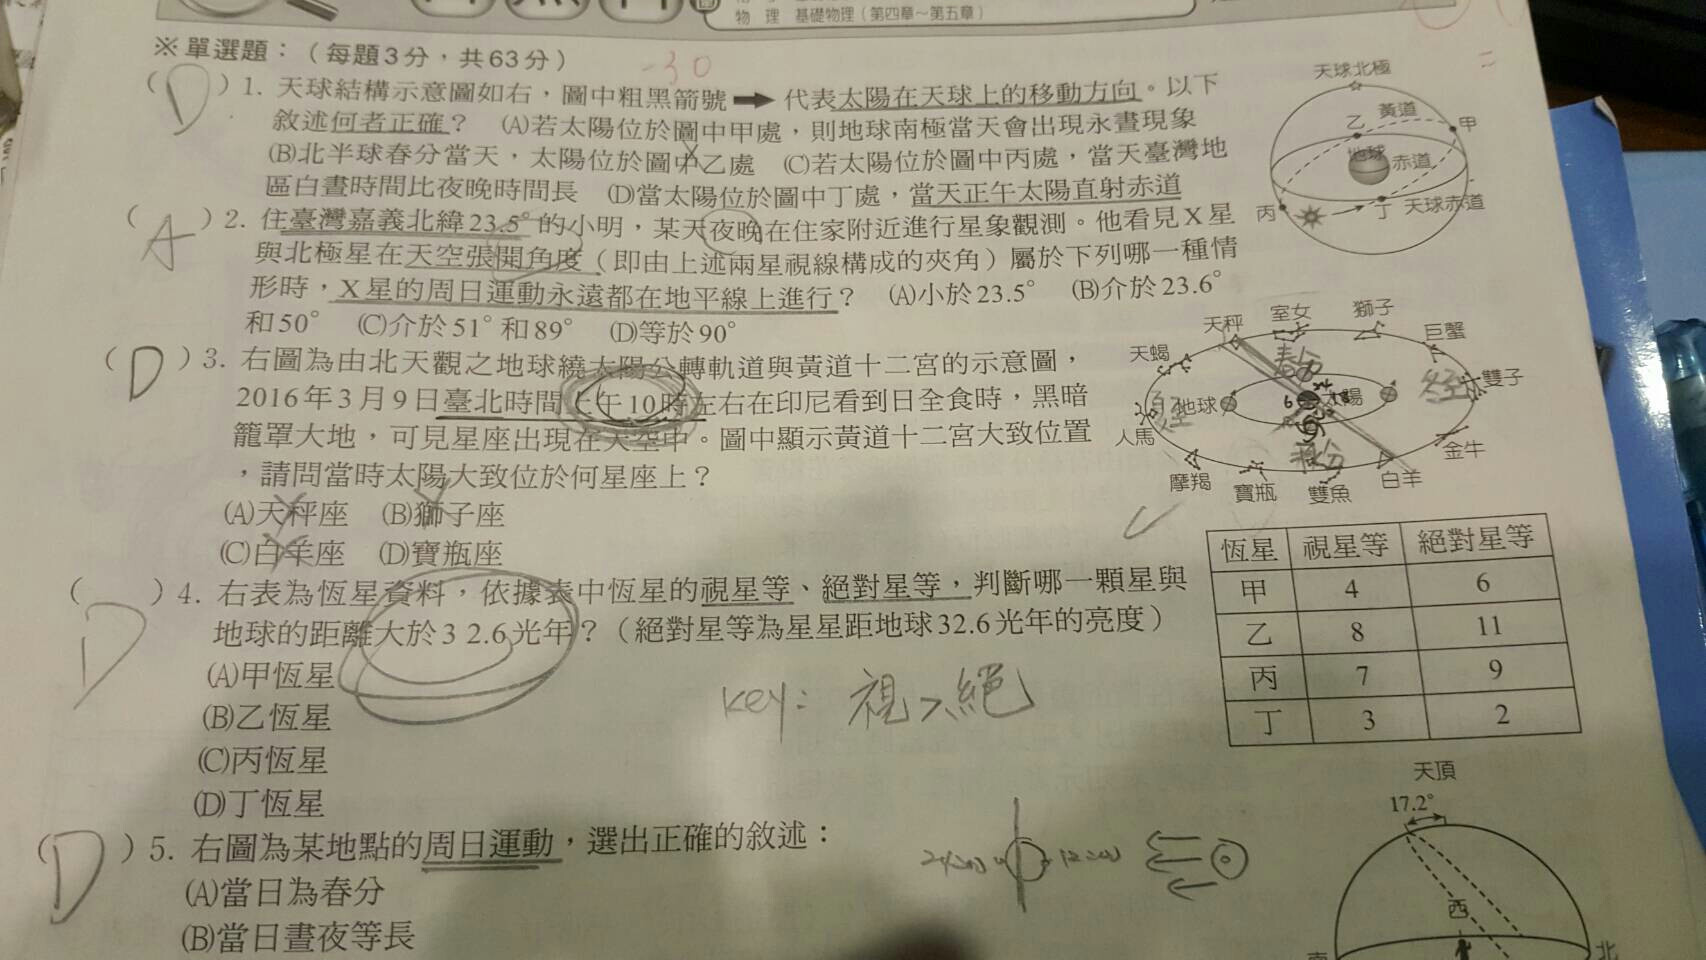 物 理 基礎物理（第四章～第五章）
※單選題：（每題3分，共63分）
-30
（D）1. 天球結構示意圖如右，圖中粗黑箭號➡代表太陽在天球上的移動方向。以下
敘述何者正確？ (A)若太陽位於圖中甲處，則地球南極當天會出現永晝現象
(B)北半球春分當天，太陽位於圖中乙處 (C)若太陽位於圖中丙處，當天臺灣地
區白晝時間比夜晚時間長 (D)當太陽位於圖中丁處，當天正午太陽直射赤道
天球北極
黃道
乙
甲
地球
赤道
丙
丁
天球赤道
（A）2. 住臺灣嘉義北緯23.5°的小明，某天夜晚在住家附近進行星象觀測。他看見X星
與北極星在天空張開角度（即由上述兩星視線構成的夾角）屬於下列哪一種情
形時，X星的周日運動永遠都在地平線上進行？ (A)小於23.5° (B)介於23.6°
和50° (C)介於51°和89° (D)等於90°
（D）3. 右圖為由北天觀之地球繞太陽公轉軌道與黃道十二宮的示意圖，
2016年3月9日臺北時間上午10時左右在印尼看到日全食時，黑暗
籠罩大地，可見星座出現在天空中。圖中顯示黃道十二宮大致位置
，請問當時太陽大致位於何星座上？
(A)天秤座 (B)獅子座
(C)白羊座 (D)寶瓶座
天秤
室女
獅子
天蠍
巨蟹
雙子
地球
陽
人馬
金牛
摩羯
寶瓶
雙魚
白羊
（D）4. 右表為恆星資料，依據表中恆星的視星等、絕對星等，判斷哪一顆星與
地球的距離大於3 2.6光年？（絕對星等為星星距地球32.6光年的亮度）
(A)甲恆星
(B)乙恆星
(C)丙恆星
(D)丁恆星
key: 視>絕
恆星 視星等 絕對星等
甲 4 6
乙 8 11
丙 7 9
丁 3 2
（D）5. 右圖為某地點的周日運動，選出正確的敘述：
(A)當日為春分
(B)當日晝夜等長
天頂
17.2°
西
南
北